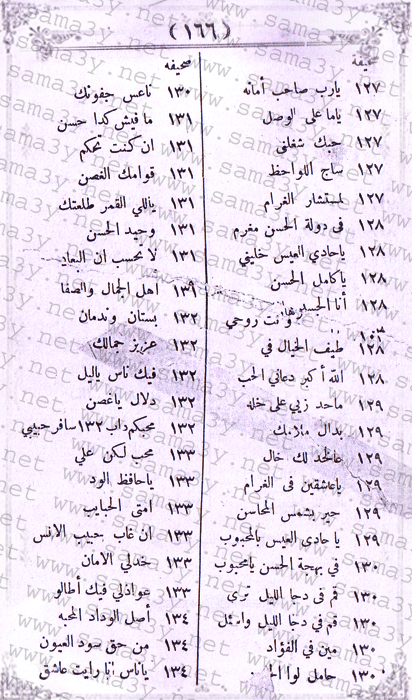 (١٦٦)
صحيفة
١٢٧ يارب صاحب أمانه
١٢٧ ياما على الوصل
١٢٧ حبك شغلنى
١٢٧ ساج اللواحظ
١٢٧ لمستشار الغرام
١٢٨ فى دولة الحسن مغرم
١٢٨ ياحادي العيس خليني
١٢٨ يا كامل الحسن
١٢٨ أنا الحسير وأنت روحي
١٢٨ طيف الخيال في
١٢٨ الله أكبر دعاني الحب
١٢٩ ماحد زيي على خله
١٢٩ بدال ملامك
١٢٩ عالخد لك خال
١٢٩ ياعاشقين فى الغرام
١٢٩ حير بشمس المحاسن
١٢٩ يا حادى العيس بالمحبوب
١٣٠ في بهجة الحسن يامحبوب
١٣٠ قم فى دجا الليل ترى
١٣٠ قم في دجا الليل وامثل
١٣٠ مين في الفؤاد
١٣٠ حامل لوا
صحيفه
١٣٠ ناعس جفونك
١٣١ مافيش كدا حسن
١٣١ ان كنت تحكم
١٣١ قوامك الغصن
١٣١ ياللي القمر طلعتك
١٣١ وحيد الحسن
١٣١ لا تحسب ان البعاد
١٣١ أهل الجمال والصفا
١٣٢ بستان وندمان
١٣٢ عزيز جمالك
١٣٢ فيك ناس ياليل
١٣٢ دلال ياغصن
١٣٢ محبكم داب ١٣٢ سافر حبيبي
١٣٣ محب لكن علي
١٣٣ ياحافظ الود
١٣٣ امتى الحبايب
١٣٣ ان غاب حبيب الانس
١٣٣ خدلي الامان
١٣٣ عواذلي فيك أطالو
١٣٤ أصل الوداد المحبه
١٣٤ من حق سود العيون
١٣٤ ياناس أنا رايت عاشق
www.sama3y.net